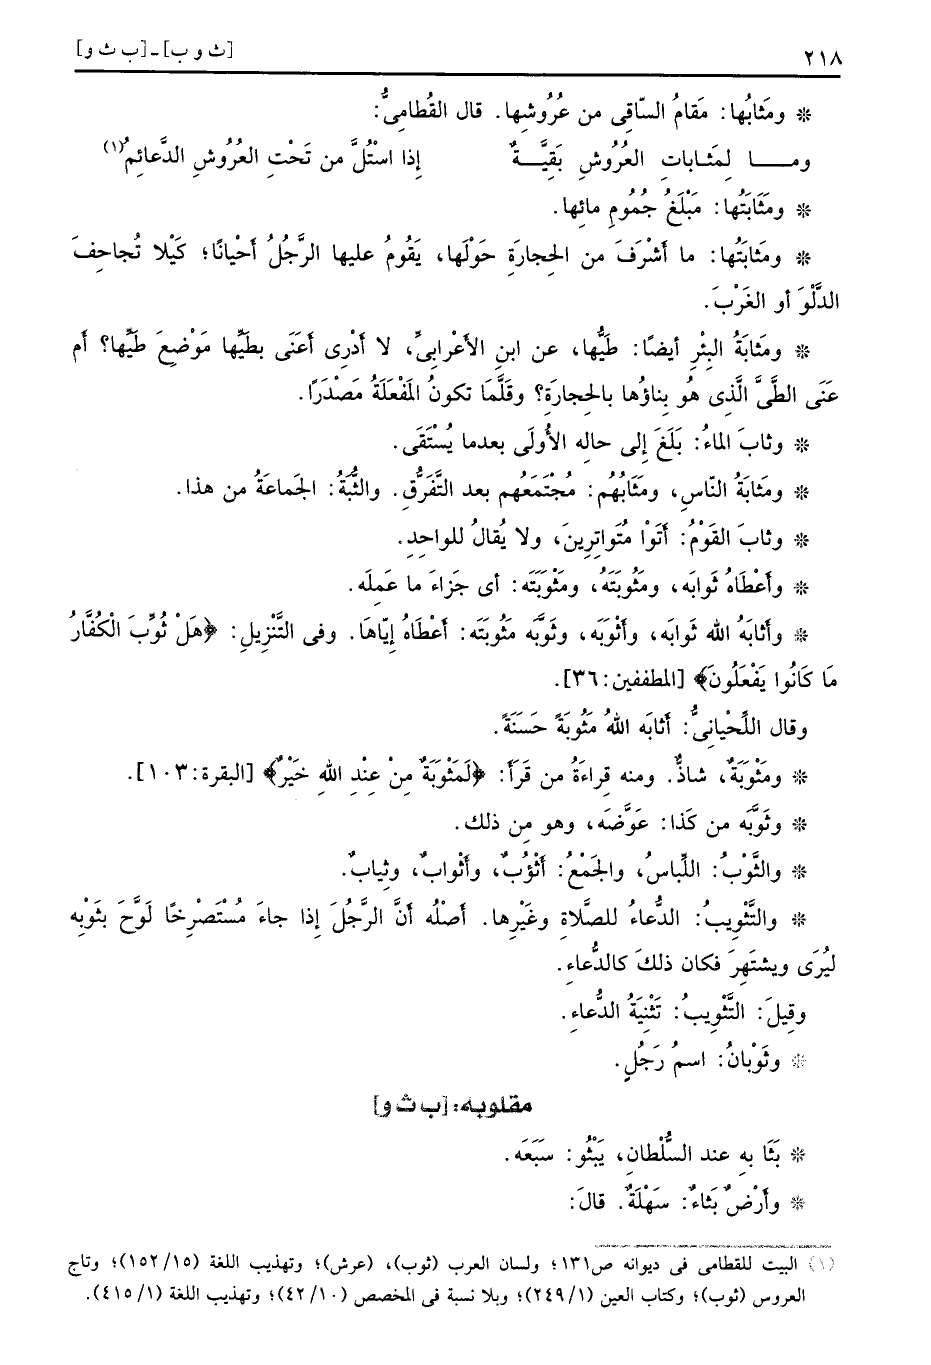 ٢١٨ [ث و ب] - [ب ث و]
* ومَثابُها: مَقامُ السّاقِى من عُرُوشِها. قال القُطامِىُّ:
ومـــا لِمَثاباتِ العُرُوشِ بَقِيَّـةٌ إذا اسْتُلَّ من تَحْتِ العُرُوشِ الدَّعائمُ(١)
* ومَثَابَتُها: مَبْلَغُ جُمُومِ مائها.
* ومَثابَتُها: ما أَشْرَفَ من الحِجارَةِ حَوْلَها، يَقُومُ عليها الرَّجُلُ أَحْيانًا؛ كَيْلا تُجاحِفَ
الدَّلْوَ أو الغَرْبَ.
* ومَثابَةُ البِئْرِ أيضًا: طَيُّها، عن ابنِ الأَعْرابِىِّ، لا أَدْرِى أَعَنَى بطَيِّها مَوْضِعَ طَيِّها؟ أم
عَنَى الطَّىَّ الَّذِى هُو بناؤُها بالحِجارَةِ؟ وقَلَّمَا تكونُ المَفْعَلَةُ مَصْدَرًا.
* وثابَ الماءُ: بَلَغَ إلى حالِه الأُولَى بعدما يُسْتَقَى.
* ومَثابَةُ النّاسِ، ومَثَابُهُم: مُجْتَمَعُهم بعد التَّفَرُّقِ. والثُّبَةُ: الجَماعَةُ من هذا.
* وثابَ القَوْمُ: أَتَوْا مُتَواتِرِينَ، ولا يُقالُ للواحِدِ.
* وأَعْطَاهُ ثَوابَه، ومَثُوبَتَهُ، ومَثْوَبَتَه: أى جَزاءَ ما عَمِلَه.
* وأَثابَهُ الله ثَوابَه، وأَثْوَبَه، وثَوَّبَه مَثُوبَتَه: أَعْطَاهُ إيّاهَا. وفى التَّنْزِيلِ: ﴿هَلْ ثُوِّبَ الْكُفَّارُ
مَا كَانُوا يَفْعَلُونَ﴾ [المطففين: ٣٦].
وقال اللِّحْيانِىُّ: أَثابَه اللهُ مَثُوبَةً حَسَنَةً.
* ومَثْوَبَةٌ، شاذٌّ. ومنه قِراءَةُ من قَرَأَ: ﴿لَمَثْوَبَةٌ مِنْ عِنْدِ الله خَيْرٌ﴾ [البقرة: ١٠٣].
* وثَوَّبَه من كَذا: عَوَّضَه، وهو من ذلك.
* والثَّوْبُ: اللِّباسُ، والجَمْعُ: أَثْوُبٌ، وأَثْوابٌ، وثِيابٌ.
* والتَّثْوِيبُ: الدُّعاءُ للصَّلاةِ وغَيْرِها. أَصْلُه أَنَّ الرَّجُلَ إذا جاءَ مُسْتَصْرِخًا لَوَّحَ بثَوْبِه
ليُرَى ويشتَهِرَ فكان ذلكَ كالدُّعاءِ.
وقِيلَ: التَّثْوِيبُ: تَثْنِيَةُ الدُّعاءِ.
* وثَوْبانُ: اسمُ رَجُلٍ.
مقلوبه: [ب ث و]
* بَثَا به عند السُّلْطانِ، يَبْثُو: سَبَعَه.
* وأَرْضٌ بَثاءٌ: سَهْلَةٌ. قالَ:
(١) البيت للقطامى فى ديوانه ص١٣١؛ ولسان العرب (ثوب)، (عرش)؛ وتهذيب اللغة (١٥/ ١٥٢)؛ وتاج
العروس (ثوب)؛ وكتاب العين (١/ ٢٤٩)؛ وبلا نسبة فى المخصص (١٠/ ٤٢)؛ وتهذيب اللغة (١/ ٤١٥).